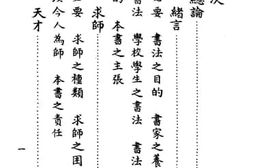 次
總論
緒言
要 書法之目的 書家之養
書法 學校學生之書法 書法
的 本書之主張
求師
要 求師之種類 求師之困
今人為師 本書之責任
天才
一